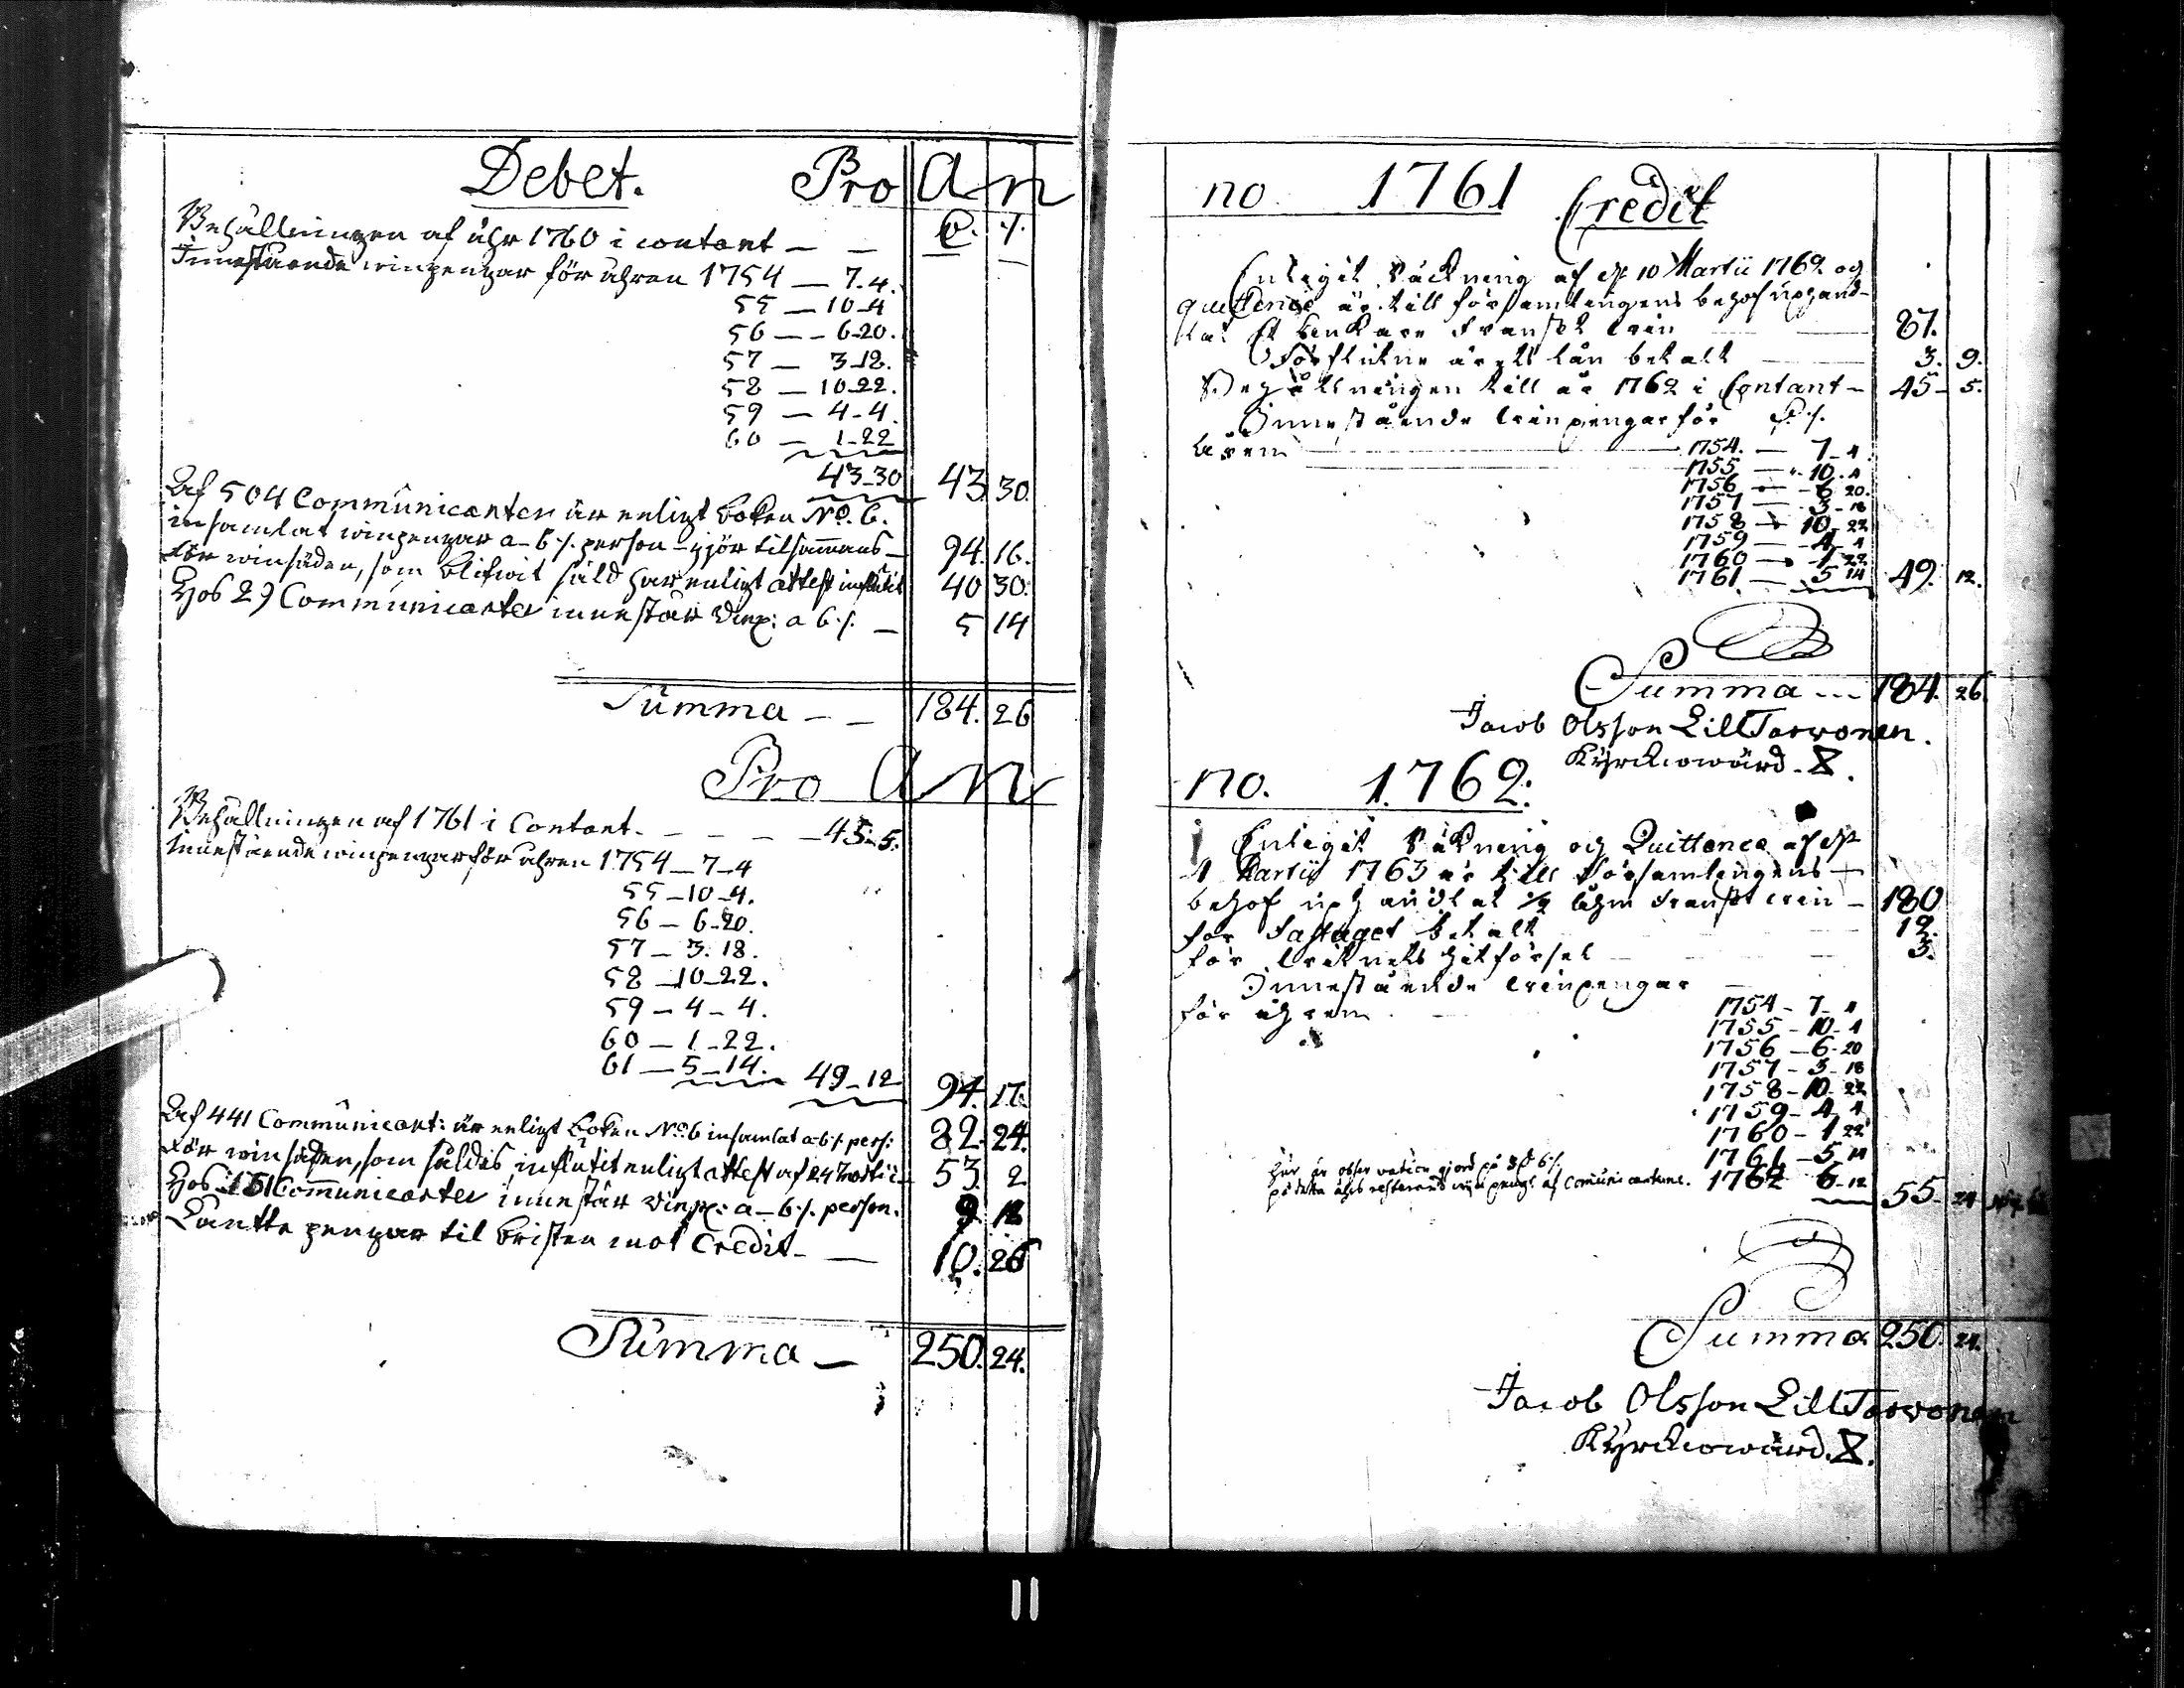 Debet. Pro An
Behållningen af åhr 1760 i contant — —
Innestående winpengar för åhren 1754 — 7-4.
55 — 10-4
56 — 6-20.
57 — 3-18.
58 — 10-22.
59 — 4-4.
60 — 1-22
43-30 43. 30.
Af 504 Communicanter är enligt boken No. 6.
insamlat winpengar a 6 /. person gjör tilsammans — 94. 16.
För winsäden, som blifwit såld har enligt attest influtit 40 30.
Hos 29 Communicanter innestår Winp: a 6 /. — 5 14
Summa — — 184. 26
Pro An
Behållningen af 1761 i Contant. — — — 45-5.
Innestående winpengar för åhren 1754 — 7-4
55 — 10-4.
56 — 6-20.
57 — 3. 18.
58 — 10-22.
59 — 4 — 4.
60 — 1-22.
61 — 5-14. 49-12 94. 17.
Af 441 Communicant: är enligt boken No 6 insamlat a 6 /. pers: 82. 24.
För winsäden, som såldes influtit enligt attest af 24 Martii 53. 2
Hos Communicanter innestår Winp: a — 6 /. person. 9 18
Låntte pengar til bristen mot Credit — — 10. 26
Summa — 250. 24.
no. 1761 Credit
Enligit Räckning af d. 10 Martii 1762 og
quittence är till församlingens behof uphand-
lat Et Anckare Franskt win 87.
Förflutne årets lån betalt 3. 9.
Behållningen till år 1762 i Contant — 45 — 5.
Innestående winpengar för
åren 1754. — 7-4.
1755 — 10-4
1756 — 6 20.
1757 — 3-18
1758 — 10-22
1759 — 4-4
1760 — 1-22
1761 — 5 14 49. 12.
Summa --- 184. 26
Jacob Olsson LillTarvonen.
Kyrckiowärd.
no. 1762.
Enligit Räkning og Quittence af d.
1 Martii 1763 är till församlingens
behof uphandlat 1/2 åhm Franskt win — 180
för Fastaget betalt 12.
för winets hitförsel 3.
Innestående winpengar
för åhren 1754 - 7-4
1755 - 10-4
1756 - 6-20
1757 - 3-18
1758 - 10-22
1759 - 4 4
1760 - 1 22
1761 - 5-14
här är observation gjord på
på detta åhrs resterande winpengr af Communicanterne. 1762 6-12 55. 24
Summa 250. 24.
Jacob Olsson LillTarvonen
Kyrckiowärd.
11